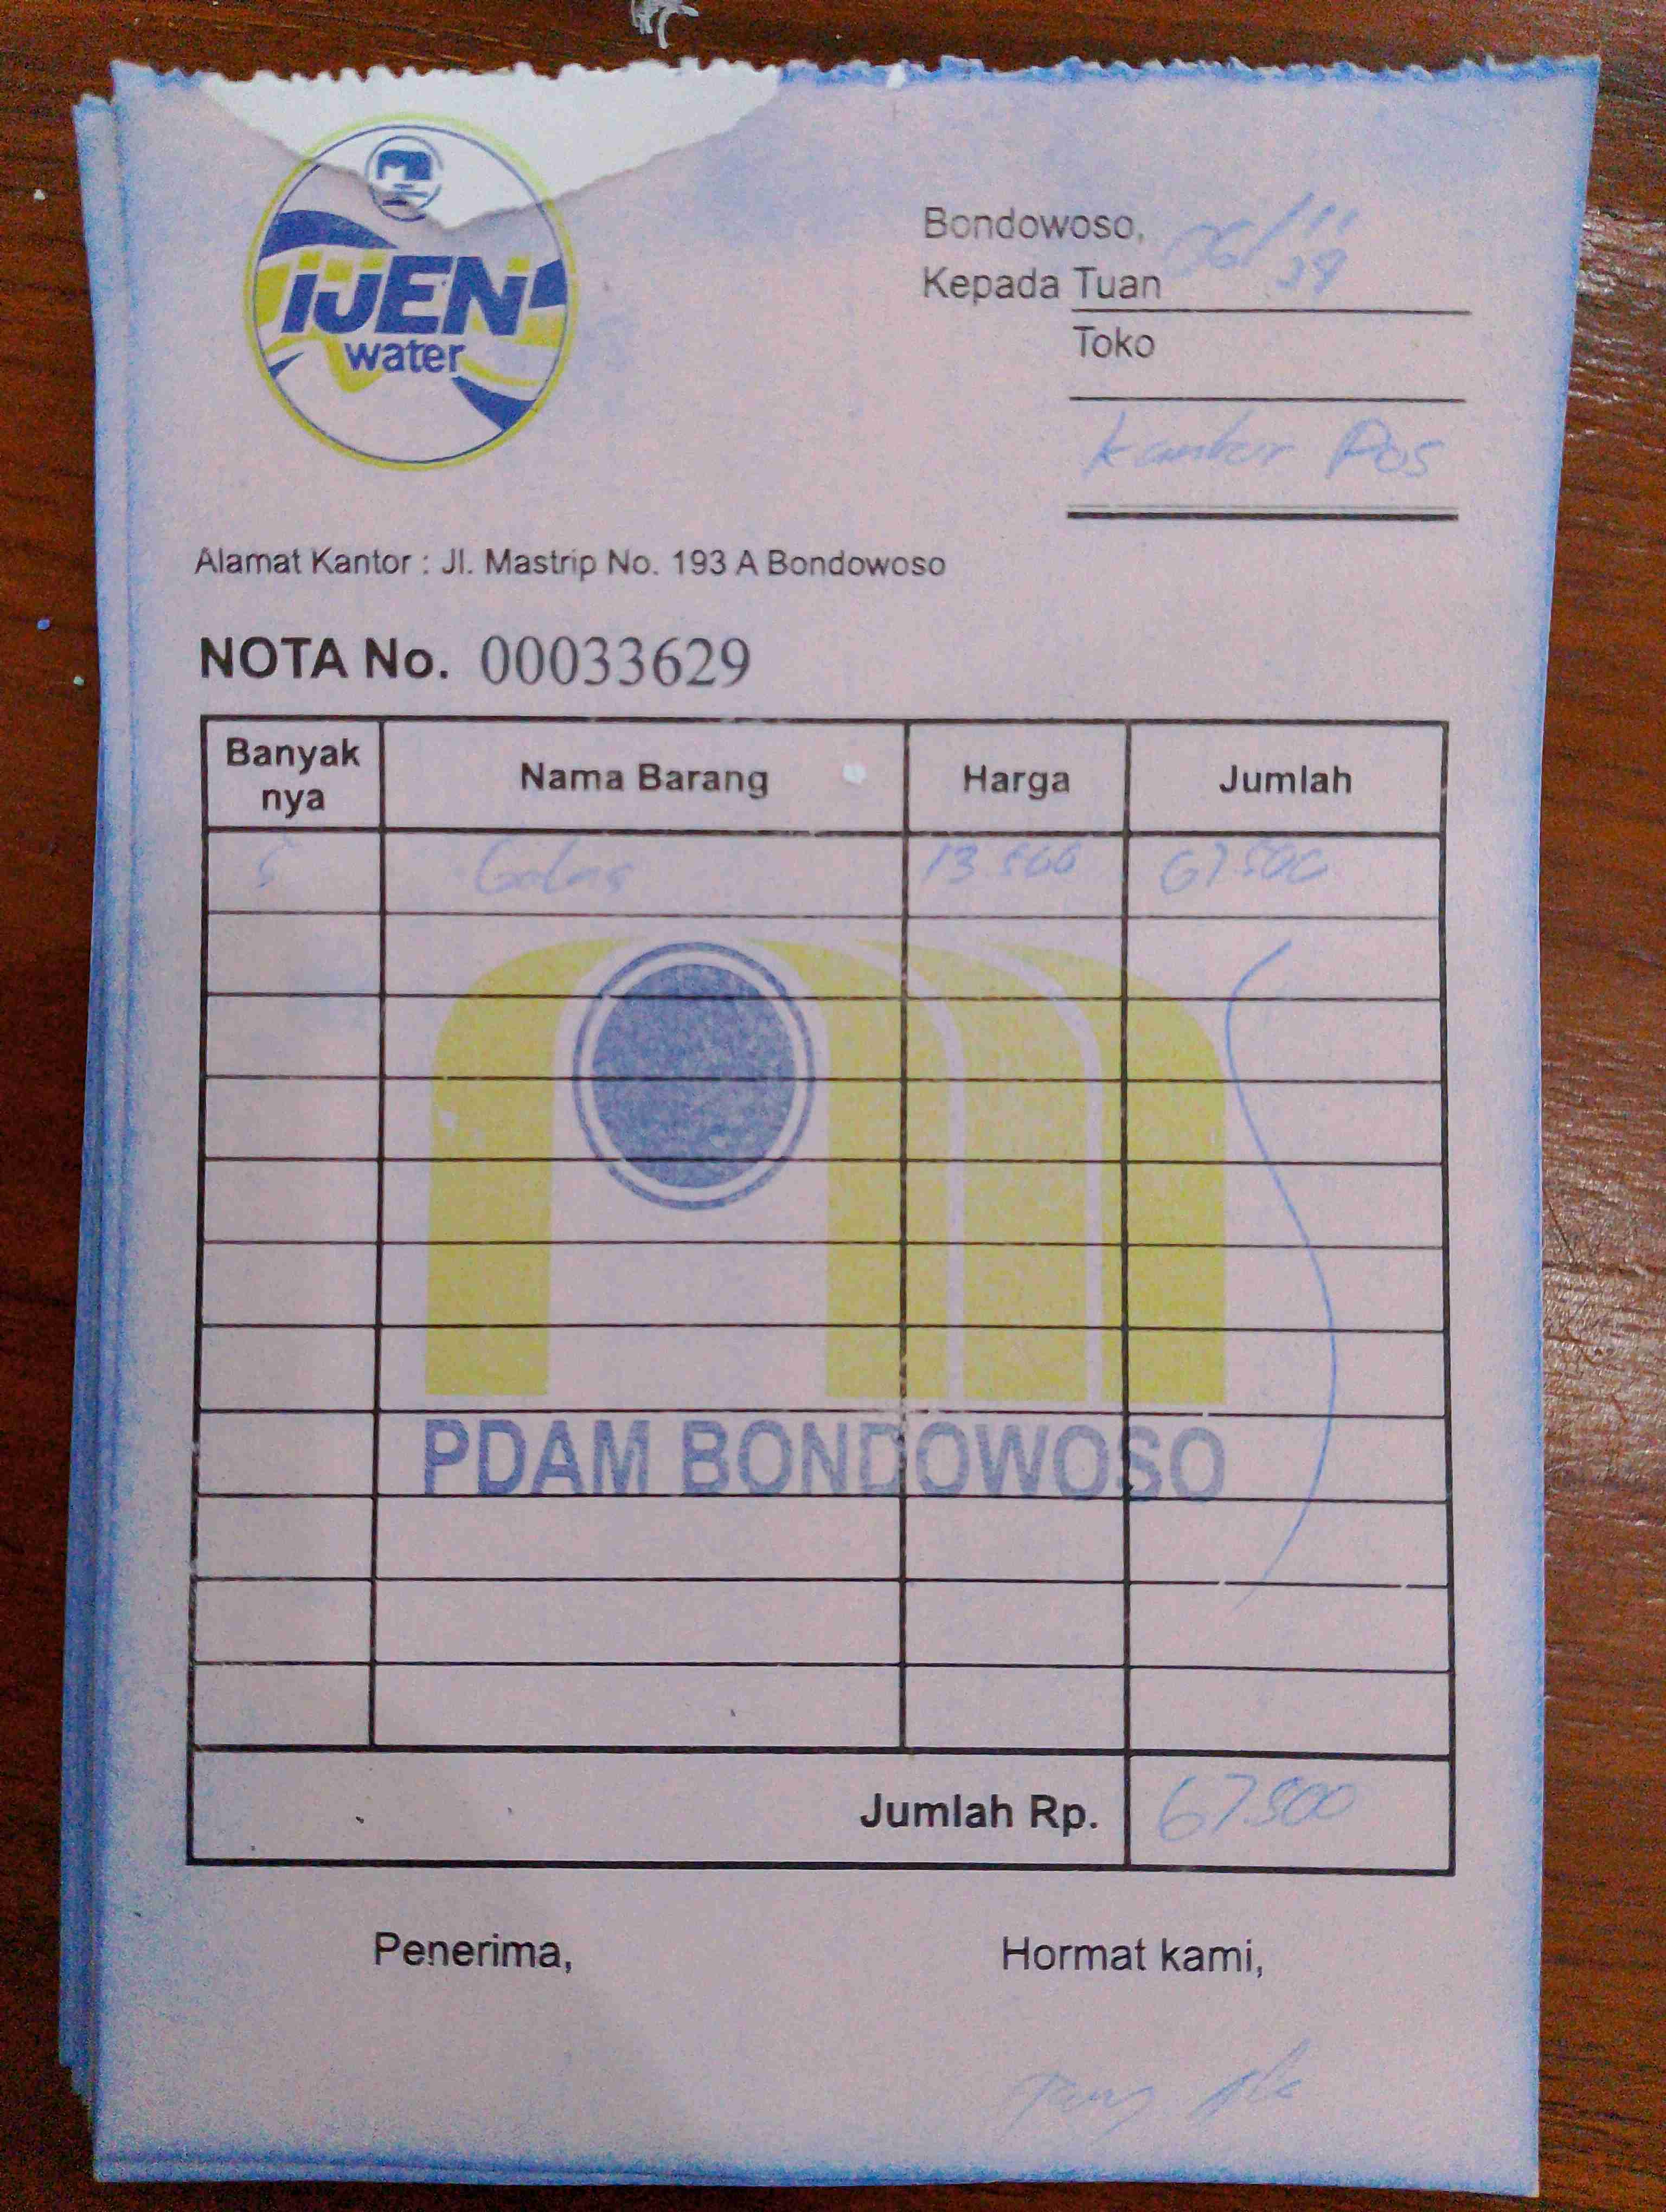 IJEN
water
Bondowoso, 06/11
Kepada Tuan
Toko
Kantor Pos
Alamat Kantor : Jl. Mastrip No. 193 A Bondowoso
NOTA No. 00033629
Banyak nya Nama Barang Harga Jumlah
5 Gelas 13 500 67 500
PDAM BONDOWOSO
Jumlah Rp. 67 500
Penerima, Hormat kami,